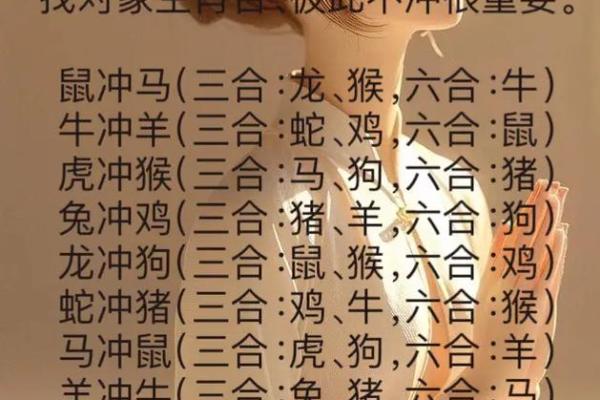 找对象生肖合,彼此不冲很重要。
鼠冲马(三合:龙、猴,六合:牛)
牛冲羊(三合:蛇、鸡,六合:鼠)
虎冲猴(三合:马、狗,六合:猪)
兔冲鸡(三合:猪、羊,六合:狗)
龙冲狗(三合:鼠、猴,六合:鸡)
蛇冲猪(三合:鸡、牛,六合:猴)
马冲鼠(三合:虎、狗,六合:羊)
羊冲牛(三合:兔、猪,六合:马)